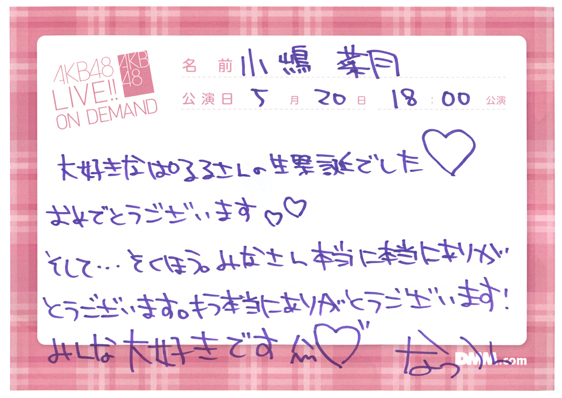 AKB48
LIVE!!
ON DEMAND
AKB
48
名前 小嶋 菜月
公演日 5月20日 18:00公演
大好きなぱるるさんの生誕でした♡
おめでとうございます♡♡
そして…そくほう。みなさん本当に本当にありが
とうございます。もう本当にありがとうございます!
みんな大好きです♡
なつ
DMM.com